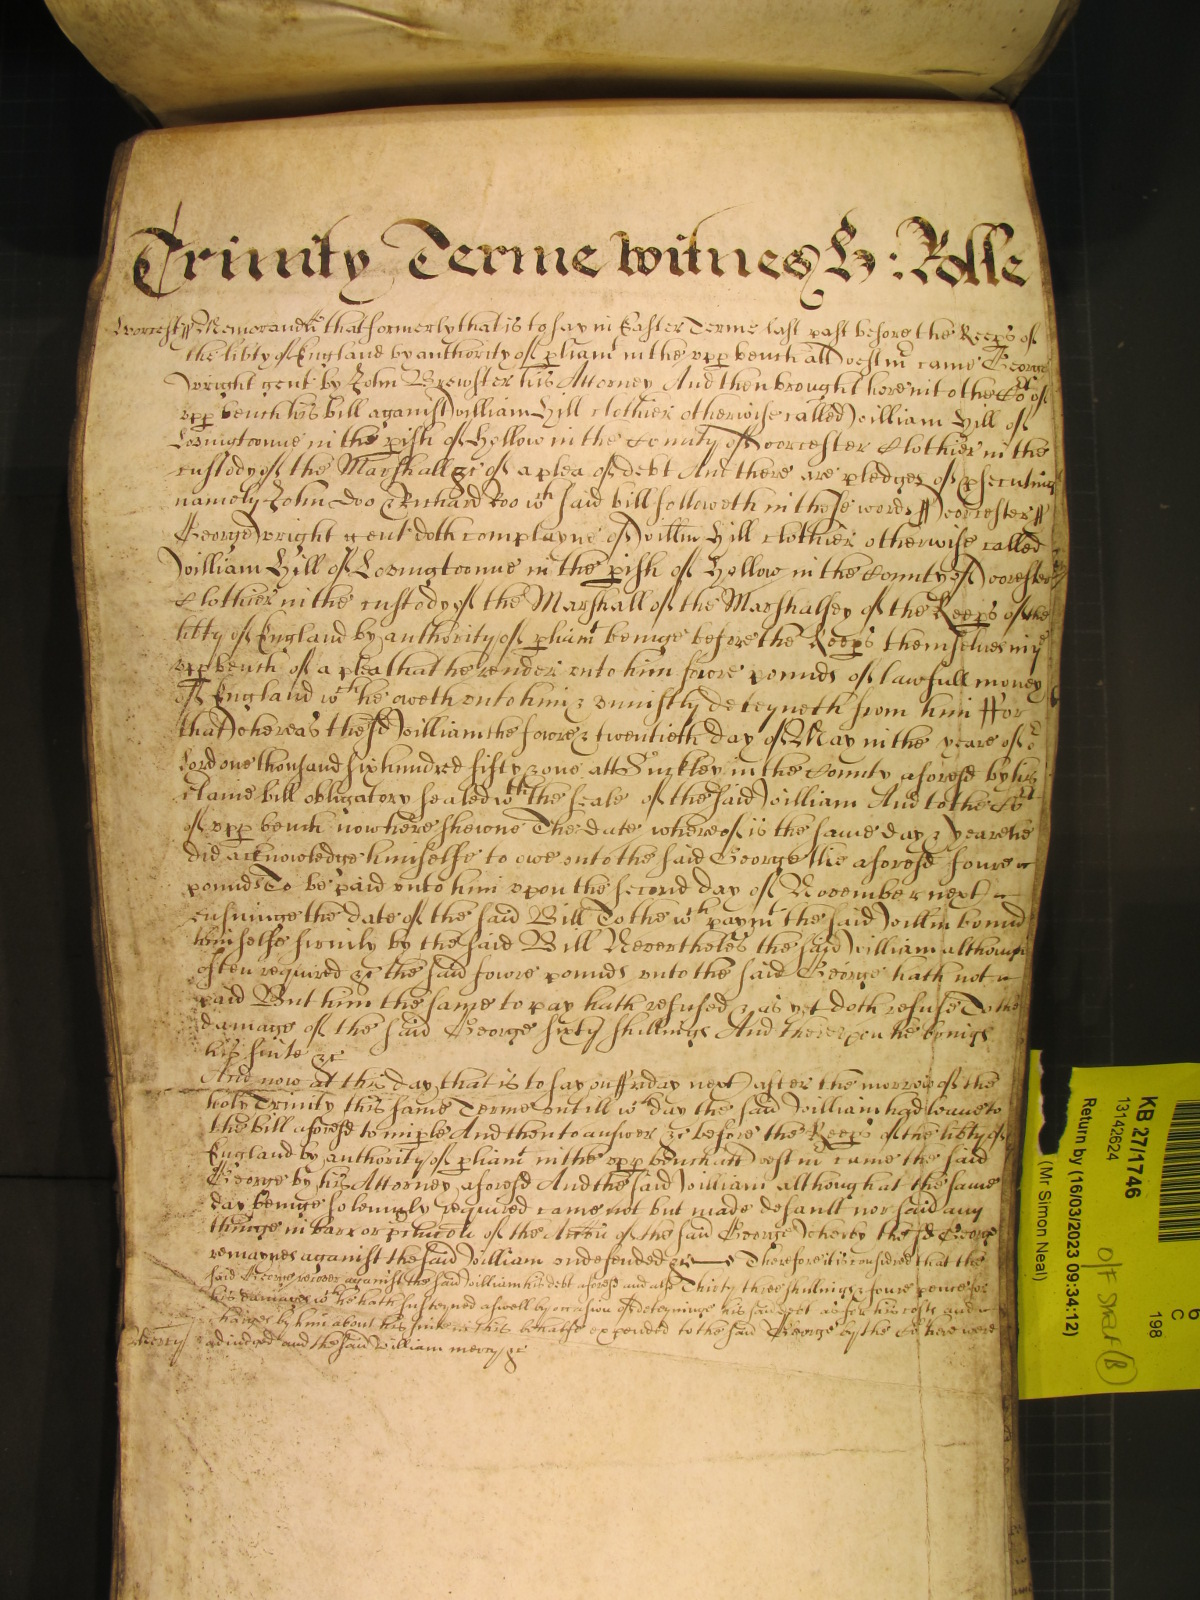 Trinity Terme witnes H: Rolle
Worcest ss Memorand that formerly that is to say in Easter Terme last past before the Keeps of
the libty of England by authority of pliamt in the upp bench att Westm came George
Wright gent by John Brewster his Attorney And then brought here into the Cort of
upp bench his bill against William Hill clothier otherwise called William Hill of
in the pish of Hollow in the County of Worcester Clothier in the
custody of the Marshall &c of a plea of debt And there are pledges of psecuting
namely John Doo & Richard Roo wch said bill followeth in these words ss Worcester ss
George Wright gent doth complayne of Willm Hill clothier otherwise called
William Hill of in the pish of Hollow in the County of Worcester
Clothier in the custody of the Marshall of the Marshalsey of the Keeps of the
libty of England by authority of pliamt beinge before the Keeps themselves in ye
upp bench of a plea that he render unto him fowre pounds of lawfull money
of England wch he oweth unto him & uniustly deteyneth from him ffor
that whereas the sd William the fowre & twentieth day of May in the yeare of or
Lord one thousand six hundred fifty & one att Suckley in the County aforesd by his
certaine bill obligatory sealed wth the seale of the said William And to the Cort
of upp bench now here shewne The date whereof is the same day & yeare he
did acknowledge himselfe to owe unto the said George the aforesd foure
pounds To be paid unto him upon the second day of November next
ensuinge the date of the said Bill To the wch paymt the said Willm bound
himselfe firmly by the said Bill Nevertheles the said William although
often required &c the said fowre pounds unto the said George hath not
paid But him the same to pay hath refused & as yet doth refuse To the
damage of the said George sixty shillings And thereupon he brings
his suite &c
And now at this day that is to say on ffriday next after the morrow of the
holy Trinity this same Terme untill wch day the said William had leave to
the bill aforesd to imple And then to answer &c before the Keeps of the libty of
England by authority of pliamt in the upp bench att Westm came the said
George by his Attorney aforesd And the said William although at the same
day beinge solemnly required came not but made default nor said any
thinge in barr or pclucon of the Accon of the said George Whereby the sd George
remaynes against the said William undefended &c Therefore it is considred that the
said George recover against the said William his debt aforesd and alsoe Thirty three shillings & foure pence for
his damages wch he hath susteyned aswell by occasion of deteyninge his said debt as for his costs and
charges by him about his suite in this behalfe expended to the said George by the Cort here were
Mercy adiudged and the said William in mercy &c
KB 27/1746
13142624
Return by (16/03/2023 09:34:12)
(Mr Simon Neal)
C
198
6
O/F Start (B)